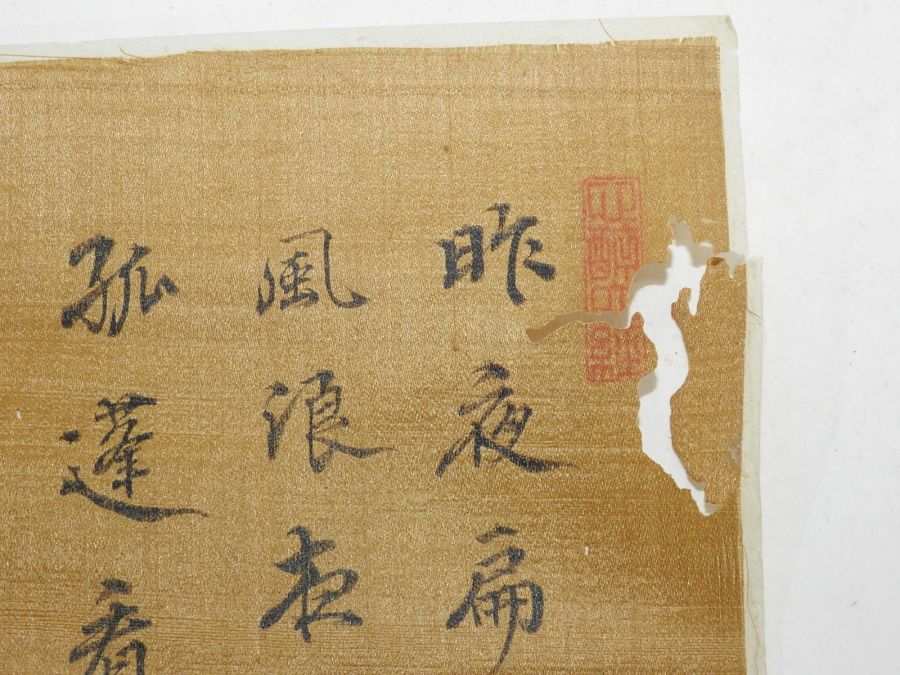 昨夜扁
風浪夜
孤蓬看